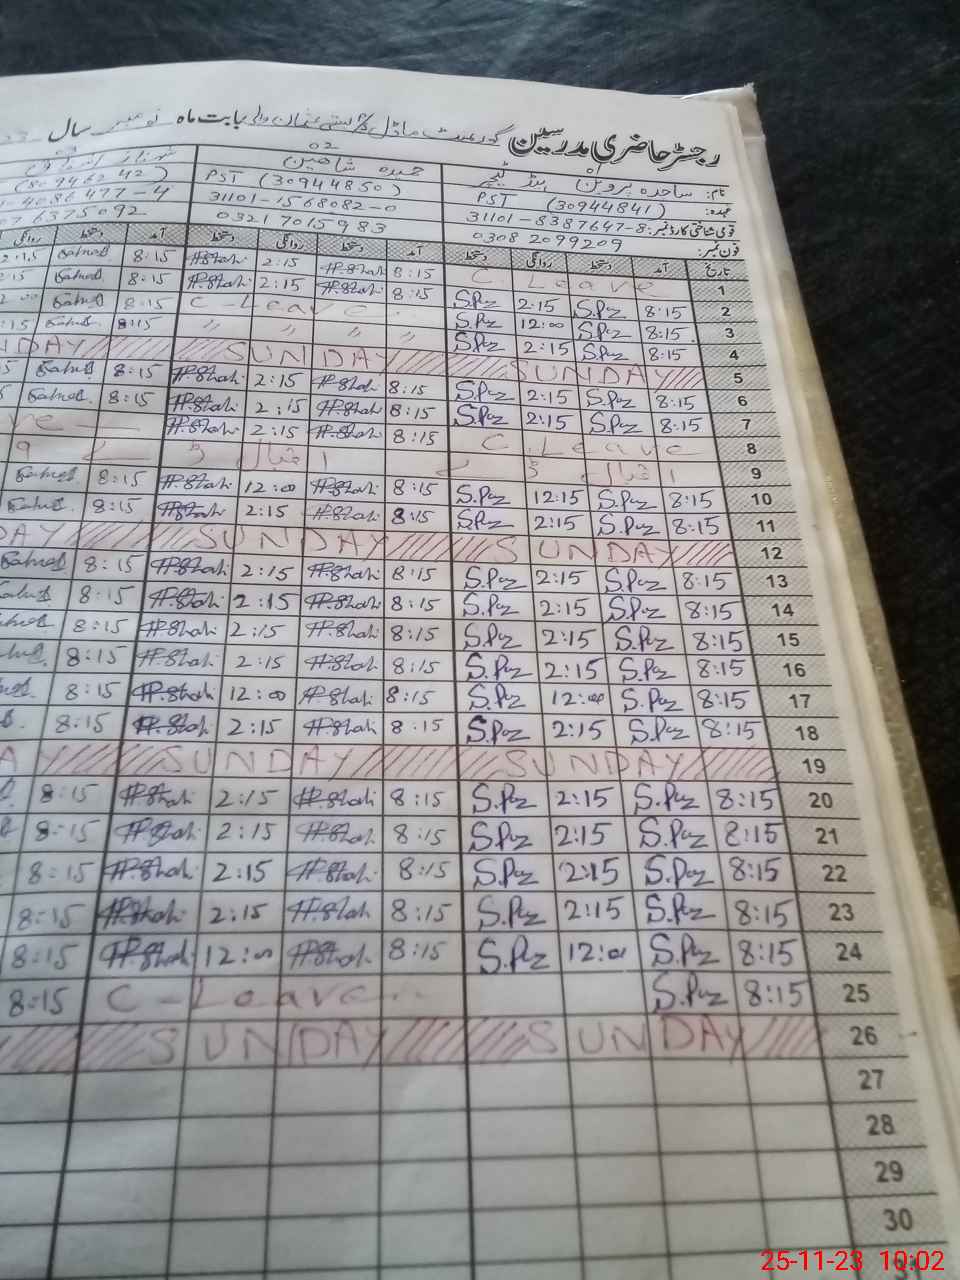 رجسٹر حاضری مدرسین گورنمنٹ ماڈل بابت ماہ نومبر سال
نام: ساجدہ پروین ہیڈ ٹیچر 02 حمیدہ شاھین
عہدہ: PST (30944841) PST (30944850) (80946242)
قومی شناختی کارڈ نمبر: 31101-8387647-8 31101-1568082-0 4086477-4
فون نمبر: 0308 2099209 0321 7015983 07 6375092
تاریخ آمد دستخط روانگی دستخط آمد دستخط روانگی دستخط آمد دستخط روانگی
1 C. Leave 8:15 H.Shah 2:15 H.Shah 8:15
2 8:15 S.Paz 2:15 S.Paz 8:15 H.Shah 2:15 H.Shah 8:15
3 8:15 S.Paz 12:00 S.Paz C-Leave 8:15
4 8:15 S.Paz 2:15 S.Paz 〃 〃 〃 〃 8:15
5 SUNDAY SUNDAY NDAY
6 8:15 S.Paz 2:15 S.Paz 8:15 H.Shah 2:15 H.Shah 8:15
7 8:15 S.Paz 2:15 S.Paz 8:15 H.Shah 2:15 H.Shah 8:15
8 C. Leave 8:15 H.Shah 2:15 H.Shah ve
9 اقبال ڈے اقبال ڈے
10 8:15 S.Paz 12:15 S.Paz 8:15 H.Shah 12:00 H.Shah 8:15
11 8:15 S.Paz 2:15 S.Paz 8:15 H.Shah 2:15 H.Shah 8:15
12 SUNDAY SUNDAY DAY
13 8:15 S.Paz 2:15 S.Paz 8:15 H.Shah 2:15 H.Shah 8:15
14 8:15 S.Paz 2:15 S.Paz 8:15 H.Shah 2:15 H.Shah 8:15
15 8:15 S.Paz 2:15 S.Paz 8:15 H.Shah 2:15 H.Shah 8:15
16 8:15 S.Paz 2:15 S.Paz 8:15 H.Shah 2:15 H.Shah 8:15
17 8:15 S.Paz 12:00 S.Paz 8:15 H.Shah 12:00 H.Shah 8:15
18 8:15 S.Paz 2:15 S.Paz 8:15 H.Shah 2:15 H.Shah 8:15
19 SUNDAY SUNDAY AY
20 8:15 S.Paz 2:15 S.Paz 8:15 H.Shah 2:15 H.Shah 8:15
21 8:15 S.Paz 2:15 S.Paz 8:15 H.Shah 2:15 H.Shah 8:15
22 8:15 S.Paz 2:15 S.Paz 8:15 H.Shah 2:15 H.Shah 8:15
23 8:15 S.Paz 2:15 S.Paz 8:15 H.Shah 2:15 H.Shah 8:15
24 8:15 S.Paz 12:00 S.Paz 8:15 H.Shah 12:00 H.Shah 8:15
25 8:15 S.Paz C-Leave 8:15
26 SUNDAY SUNDAY
27
28
29
30
25-11-23 10:02